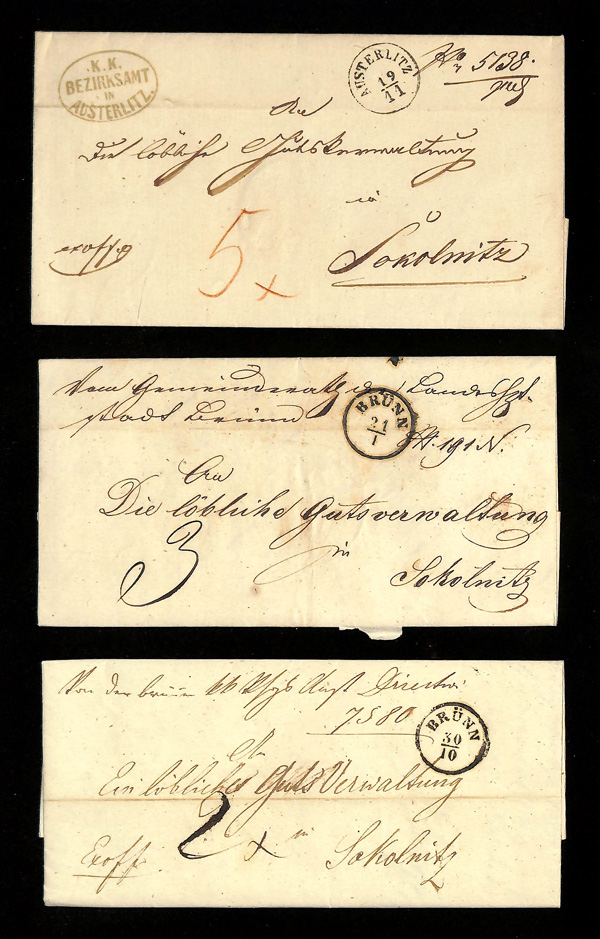 K. K.
BEZIRKSAMT
IN
AUSTERLITZ.
AUSTERLITZ
19/11
5138.
An
Die löbliche Gutsverwaltung
in
Sokolnitz
exoffo
5x
Vom Gemeinderath der Landeshpt-
stadt Brünn
BRÜNN
21/1
191 N.
An
Die löbliche Gutsverwaltung
3
in
Sokolnitz
Von der
7580
BRÜNN
30/10
An
Ein löbliches Guts Verwaltung
2x
in
Exoff.
Sokolnitz